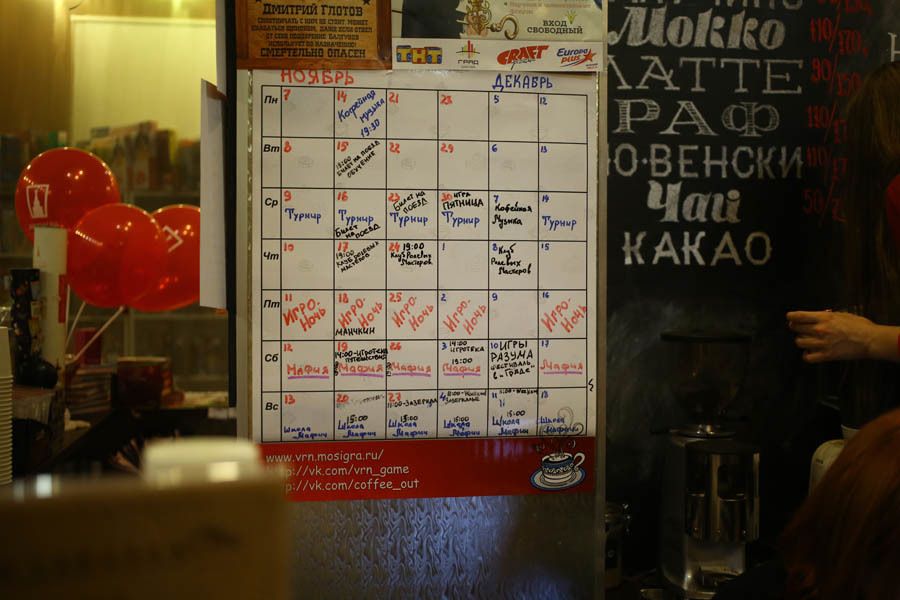 ДМИТРИЙ ГЛОТОВ
СМЕРТЕЛЬНО ОПАСЕН
ВХОД
СВОБОДНЫЙ
ТНТ
ГРАД
CRAFT
Европа
plus
НОЯБРЬ ДЕКАБРЬ
Пн 7 14 21 28 5 12
Кофейная
музыка
19:30
Вт 8 15 22 29 6 13
БИЛЕТ НА ПОЕЗД
ОБУЧЕНИЕ
Ср 9 16 23 БИЛЕТ НА ПОЕЗД 30 ИГРА ПЯТНИЦА 7 Кофейная Музыка 14
Турнир Турнир Турнир Турнир Турнир
БИЛЕТ НА ПОЕЗД
Чт 10 17 24 19:00 1 8 Клуб 15
19:00 Клуб Ролевых Мастеров
Клуб Ролевых Мастеров
Ролевых Мастеров
Пт 11 18 25 2 9 16
ИГРО-НОЧЬ ИГРО-НОЧЬ ИГРО-НОЧЬ ИГРО-НОЧЬ ИГРО-НОЧЬ
МАНЧКИН
Сб 12 19 26 3 14:00 ИГРОТЕКА 10 ИГРЫ РАЗУМА 17
14:00-ИГРОТЕКА
19:00
ФЕСТИВАЛЬ в "Граде"
МАФИЯ МАФИЯ МАФИЯ МАФИЯ МАФИЯ
Вс 13 20 27 4 11 18
15:00 15:00 15:00 15:00
Школа Мафии Школа Мафии Школа Мафии Школа Мафии Школа Мафии Школа Мафии
www.vrn.mosigra.ru/
http://vk.com/vrn_game
http://vk.com/coffee_out
Мокко
ЛАТТЕ
РАФ
ПО-ВЕНСКИ
Чай
КАКАО